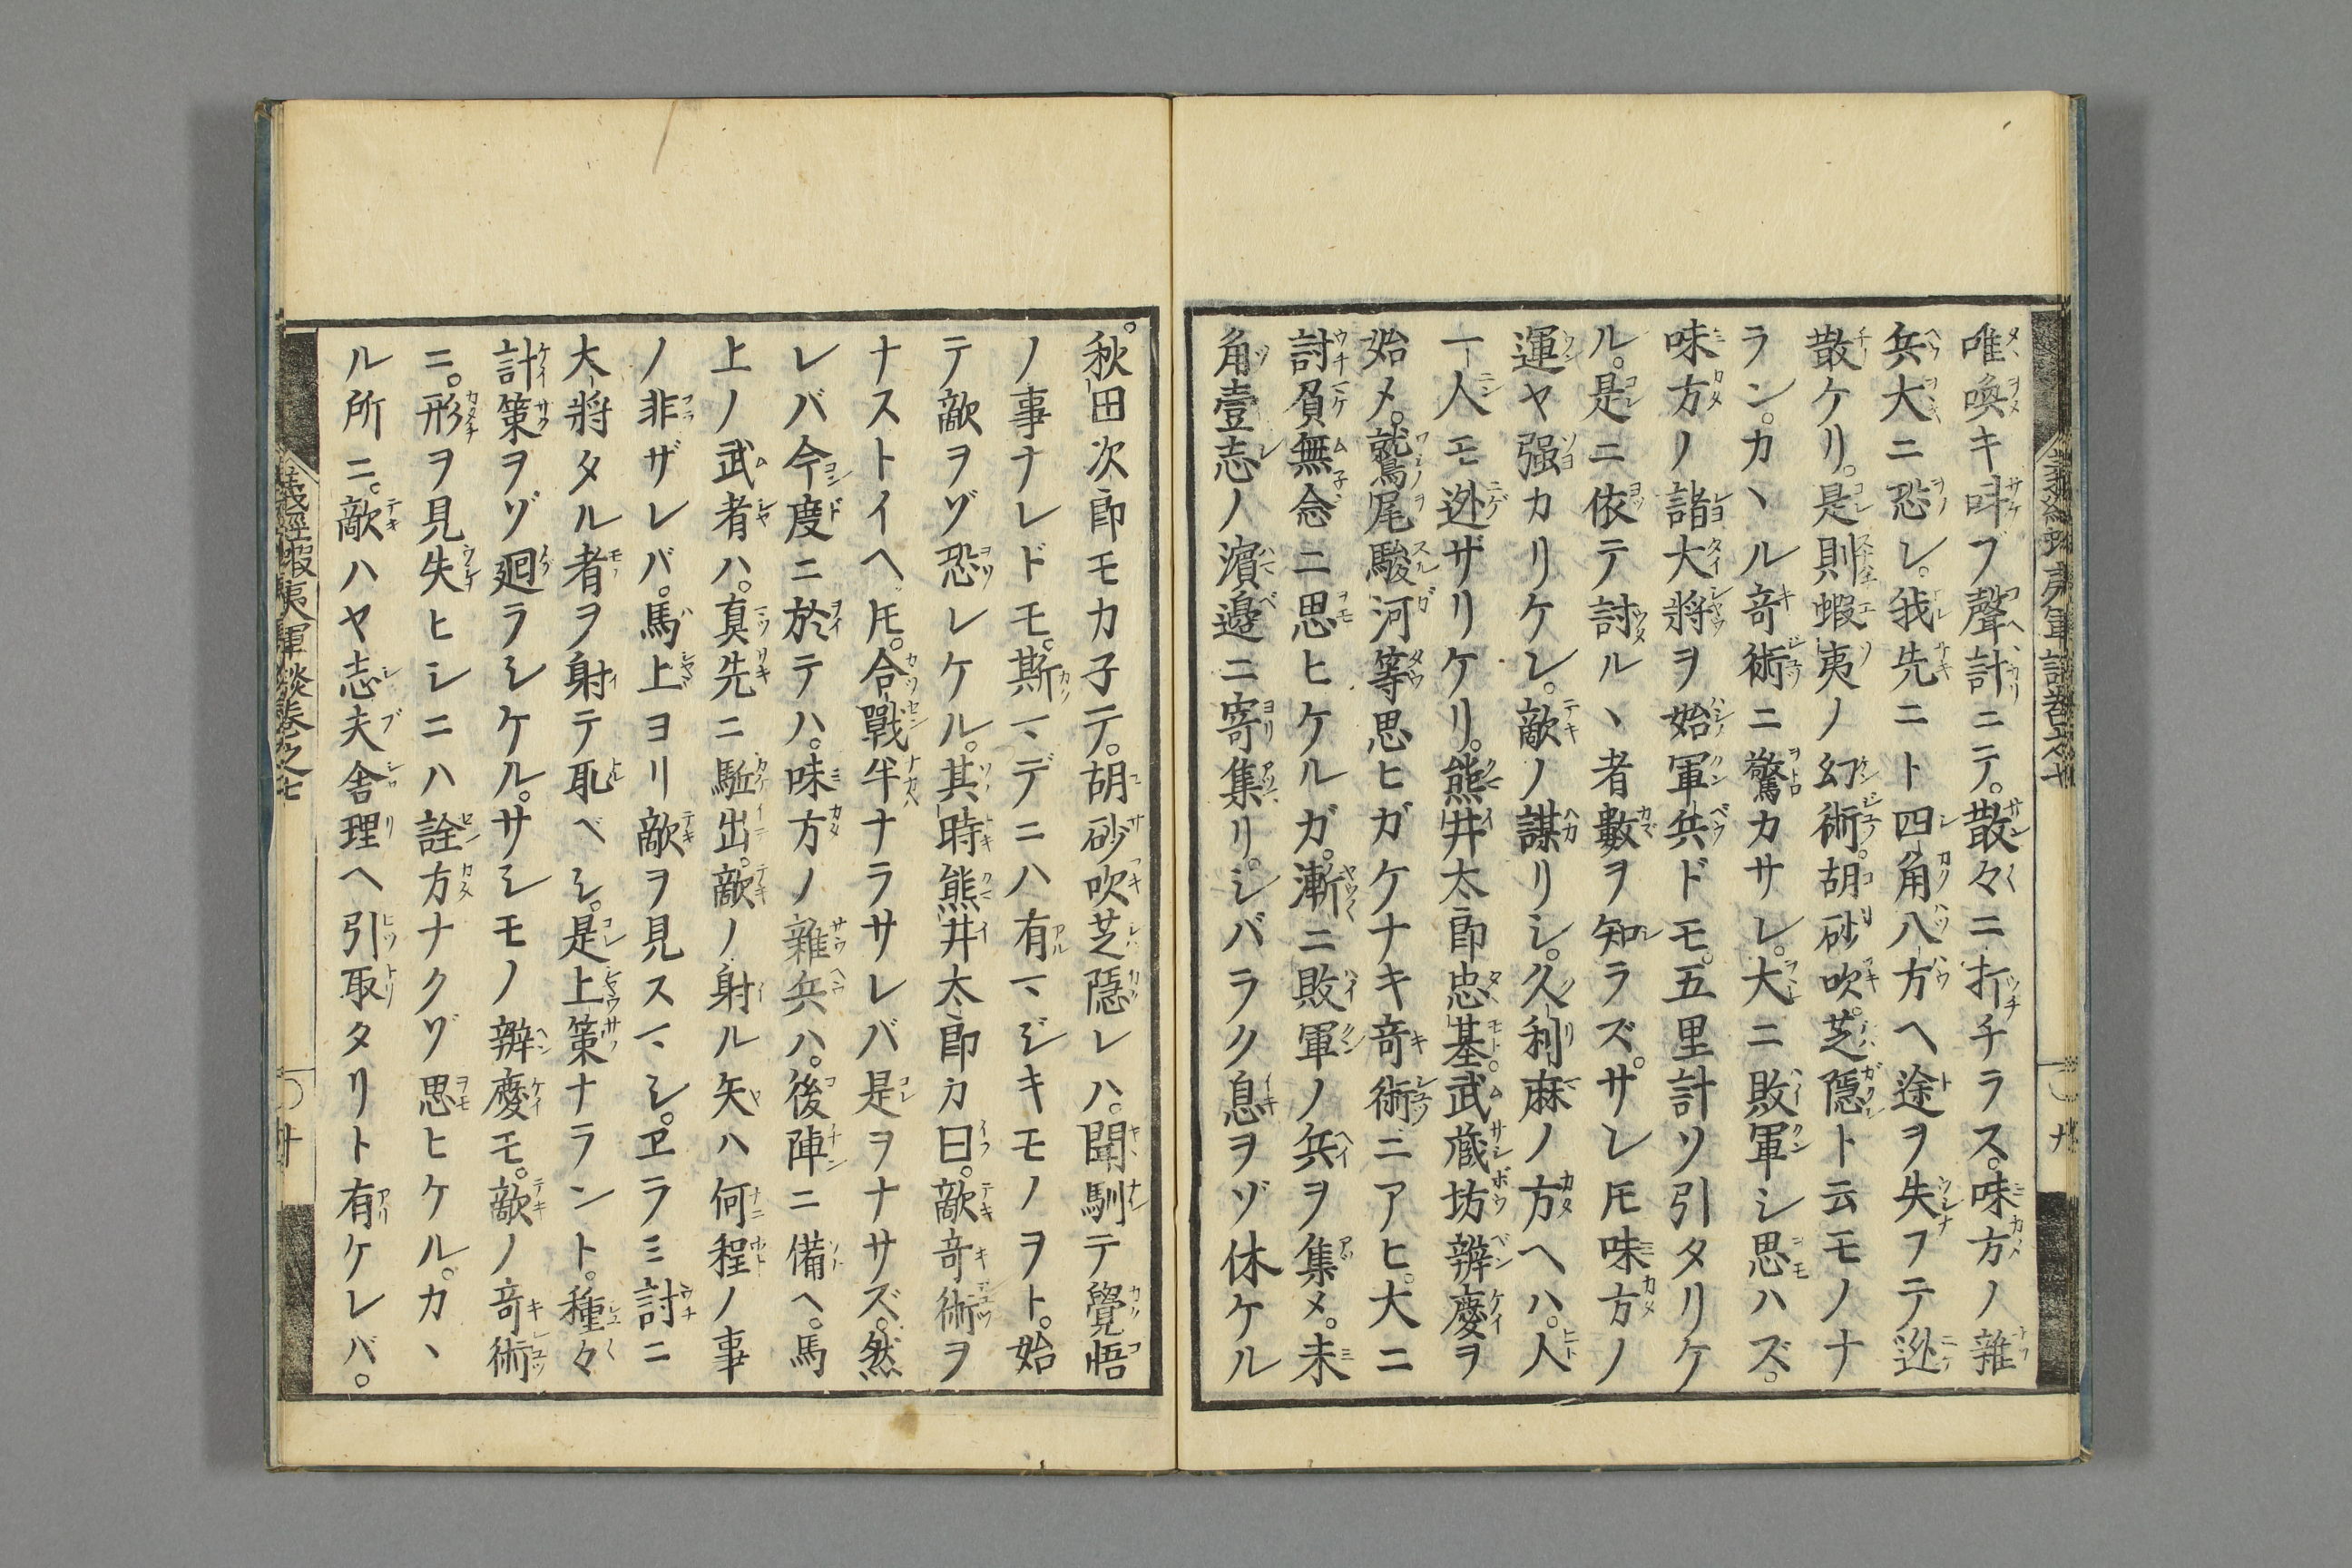 唯喚キ呌ブ聲計ニテ。散々ニ打チラス。味方ノ雜
兵大ニ恐レ。我先ニト四角八方ヘ途ヲ失フテ迯
散ケリ。是則蝦夷ノ幻術。胡砂吹。芝隱ト云モノナ
ラン。カヽル竒術ニ驚カサレ。大ニ敗軍シ思ハズ。
味方ノ諸大将ヲ始軍兵ドモ。五里計ソ引タリケ
ル。是ニ依テ討ルヽ者數ヲ知ラズ。サレ𪜈味方ノ
運ヤ强カリケン。敵ノ謀リシ。久利麻ノ方ヘハ。人
一人モ迯ザリケリ。熊井太郎忠基。武蔵坊辨慶ヲ
始メ。鷲尾駿河等思ヒガケナキ竒術ニアヒ。大ニ
討負無念ニ思ヒケルガ。漸ニ敗軍ノ兵ヲ集メ。未
角壹志ノ濵邊ニ寄集リ。シバラク息ヲゾ休ケル
。秋田次郎モカ子テ。胡砂吹芝隱レハ。聞馴テ覺悟
ノ事ナレドモ。斯マデニハ有マジキモノヲト。始
テ敵ヲゾ恐レケル。其時熊井太郎カ曰。敵竒術ヲ
ナストイヘ𪜈。合戰半ナラサレバ是ヲナサズ。然
レバ今度ニ於テハ。味方ノ雜兵ハ。後陣ニ備ヘ。馬
上ノ武者ハ。真先ニ駈出。敵ノ射ル矢ハ何程ノ事
ノ非ザレバ。馬上ヨリ敵ヲ見スマシ。ヱラミ討ニ
大将タル者ヲ射テ取ベシ。是上策ナラント。種々
計策ヲゾ廻ラシケル。サシモノ辨慶モ。敵ノ竒術
ニ。形ヲ見失ヒシニハ詮方ナクゾ思ヒケル。カヽ
ル所ニ。敵ハヤ志夫舎理ヘ引取タリト有ケレバ。
義經蝦夷軍談卷之七
〇 十